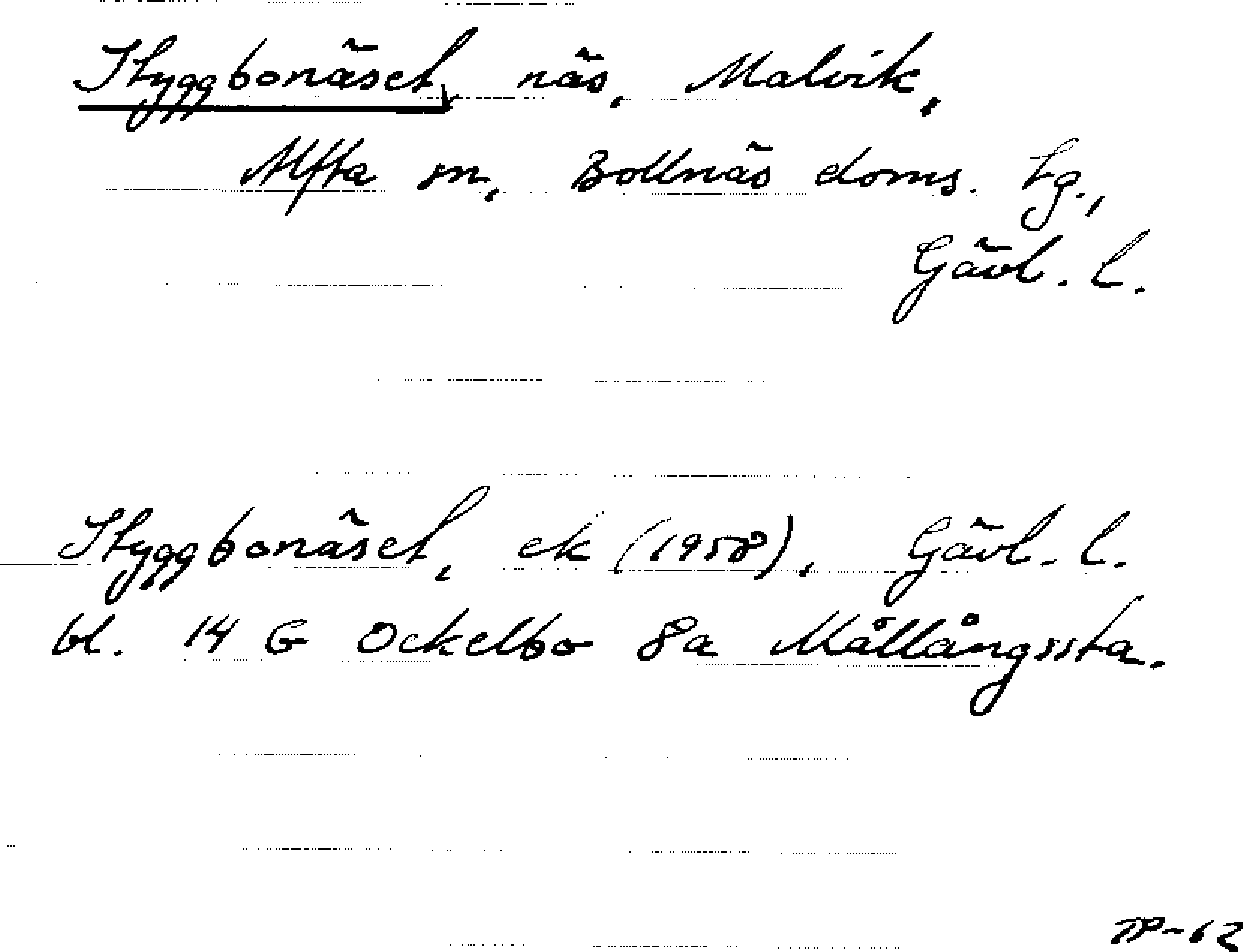 Styggbonäset, näs, Malvik,
Alfta sn, Bollnäs doms. tg.,
Gävl. l.
Styggbonäset, ek (1958), Gävl. l.
bl. 14 G Ockelbo 8a Mållångssta.
TP-62